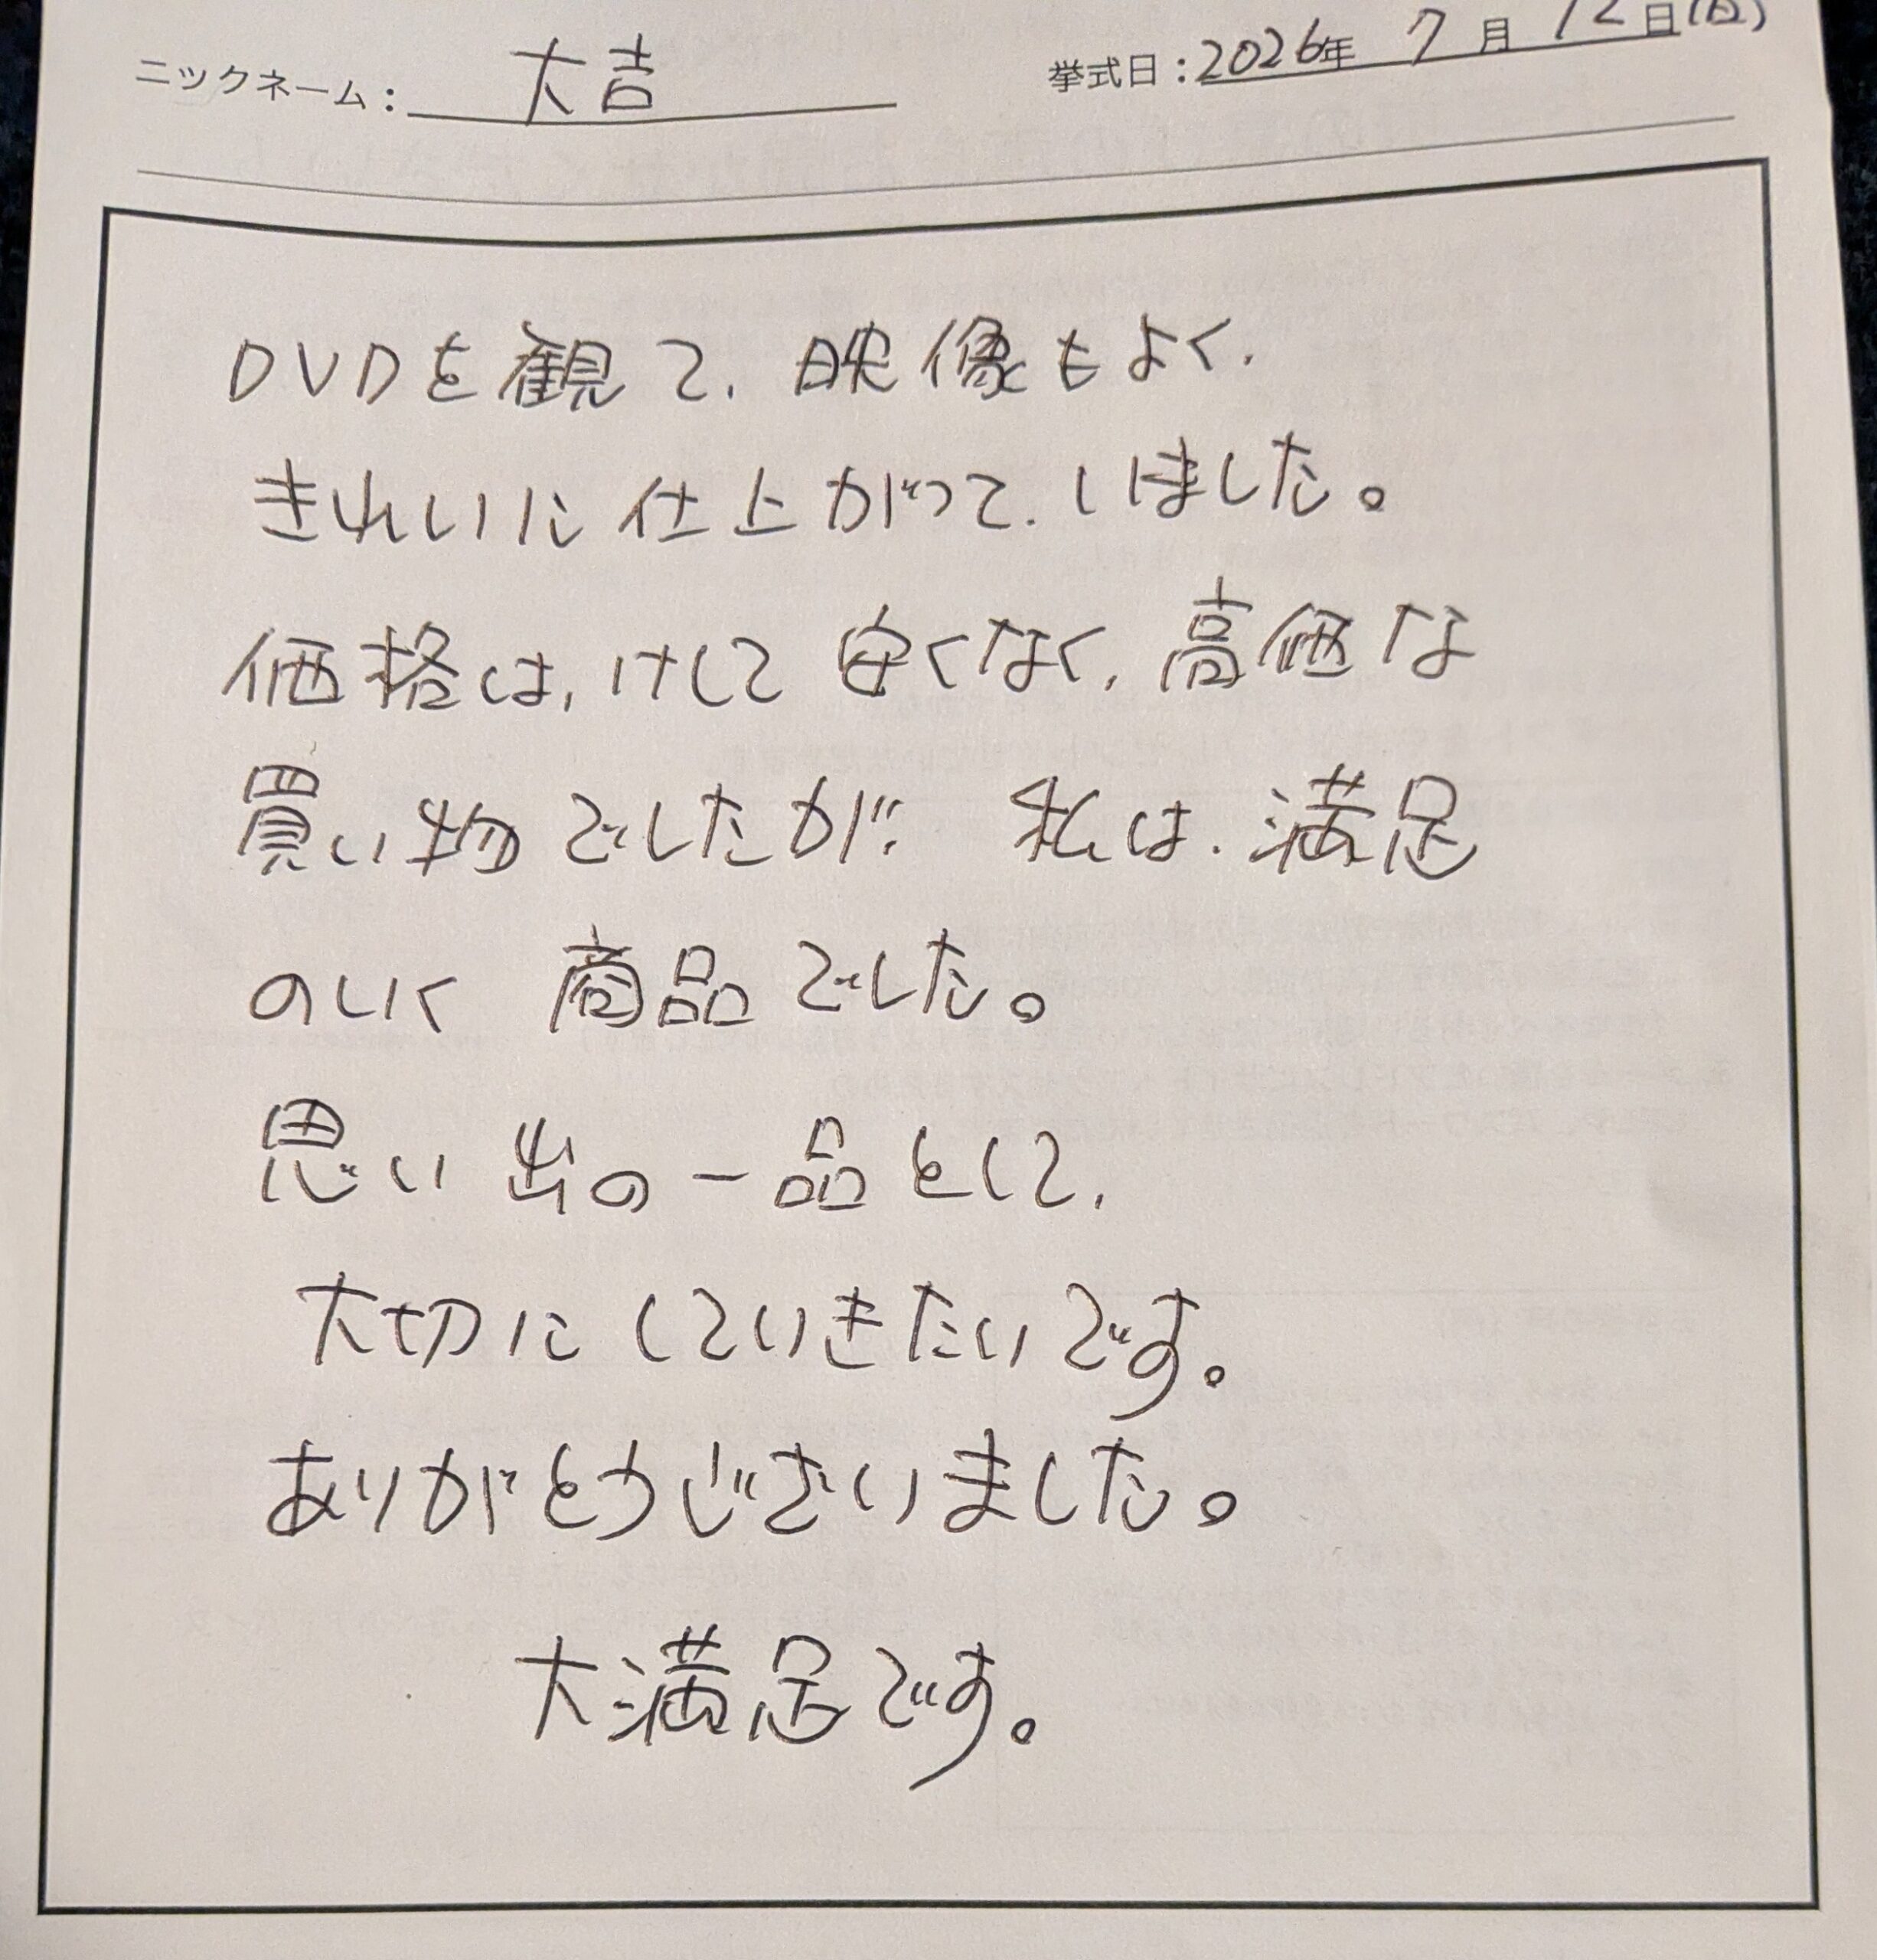 ニックネーム：大吉 挙式日：2026年 7月 12日(日)
DVDを観て、映像もよく、
きれいに仕上がって、いました。
価格は、けして安くなく、高価な
買い物でしたが、私は、満足
のいく 商品でした。
思い出の一品として、
大切にしていきたいです。
ありがとうございました。
大満足です。